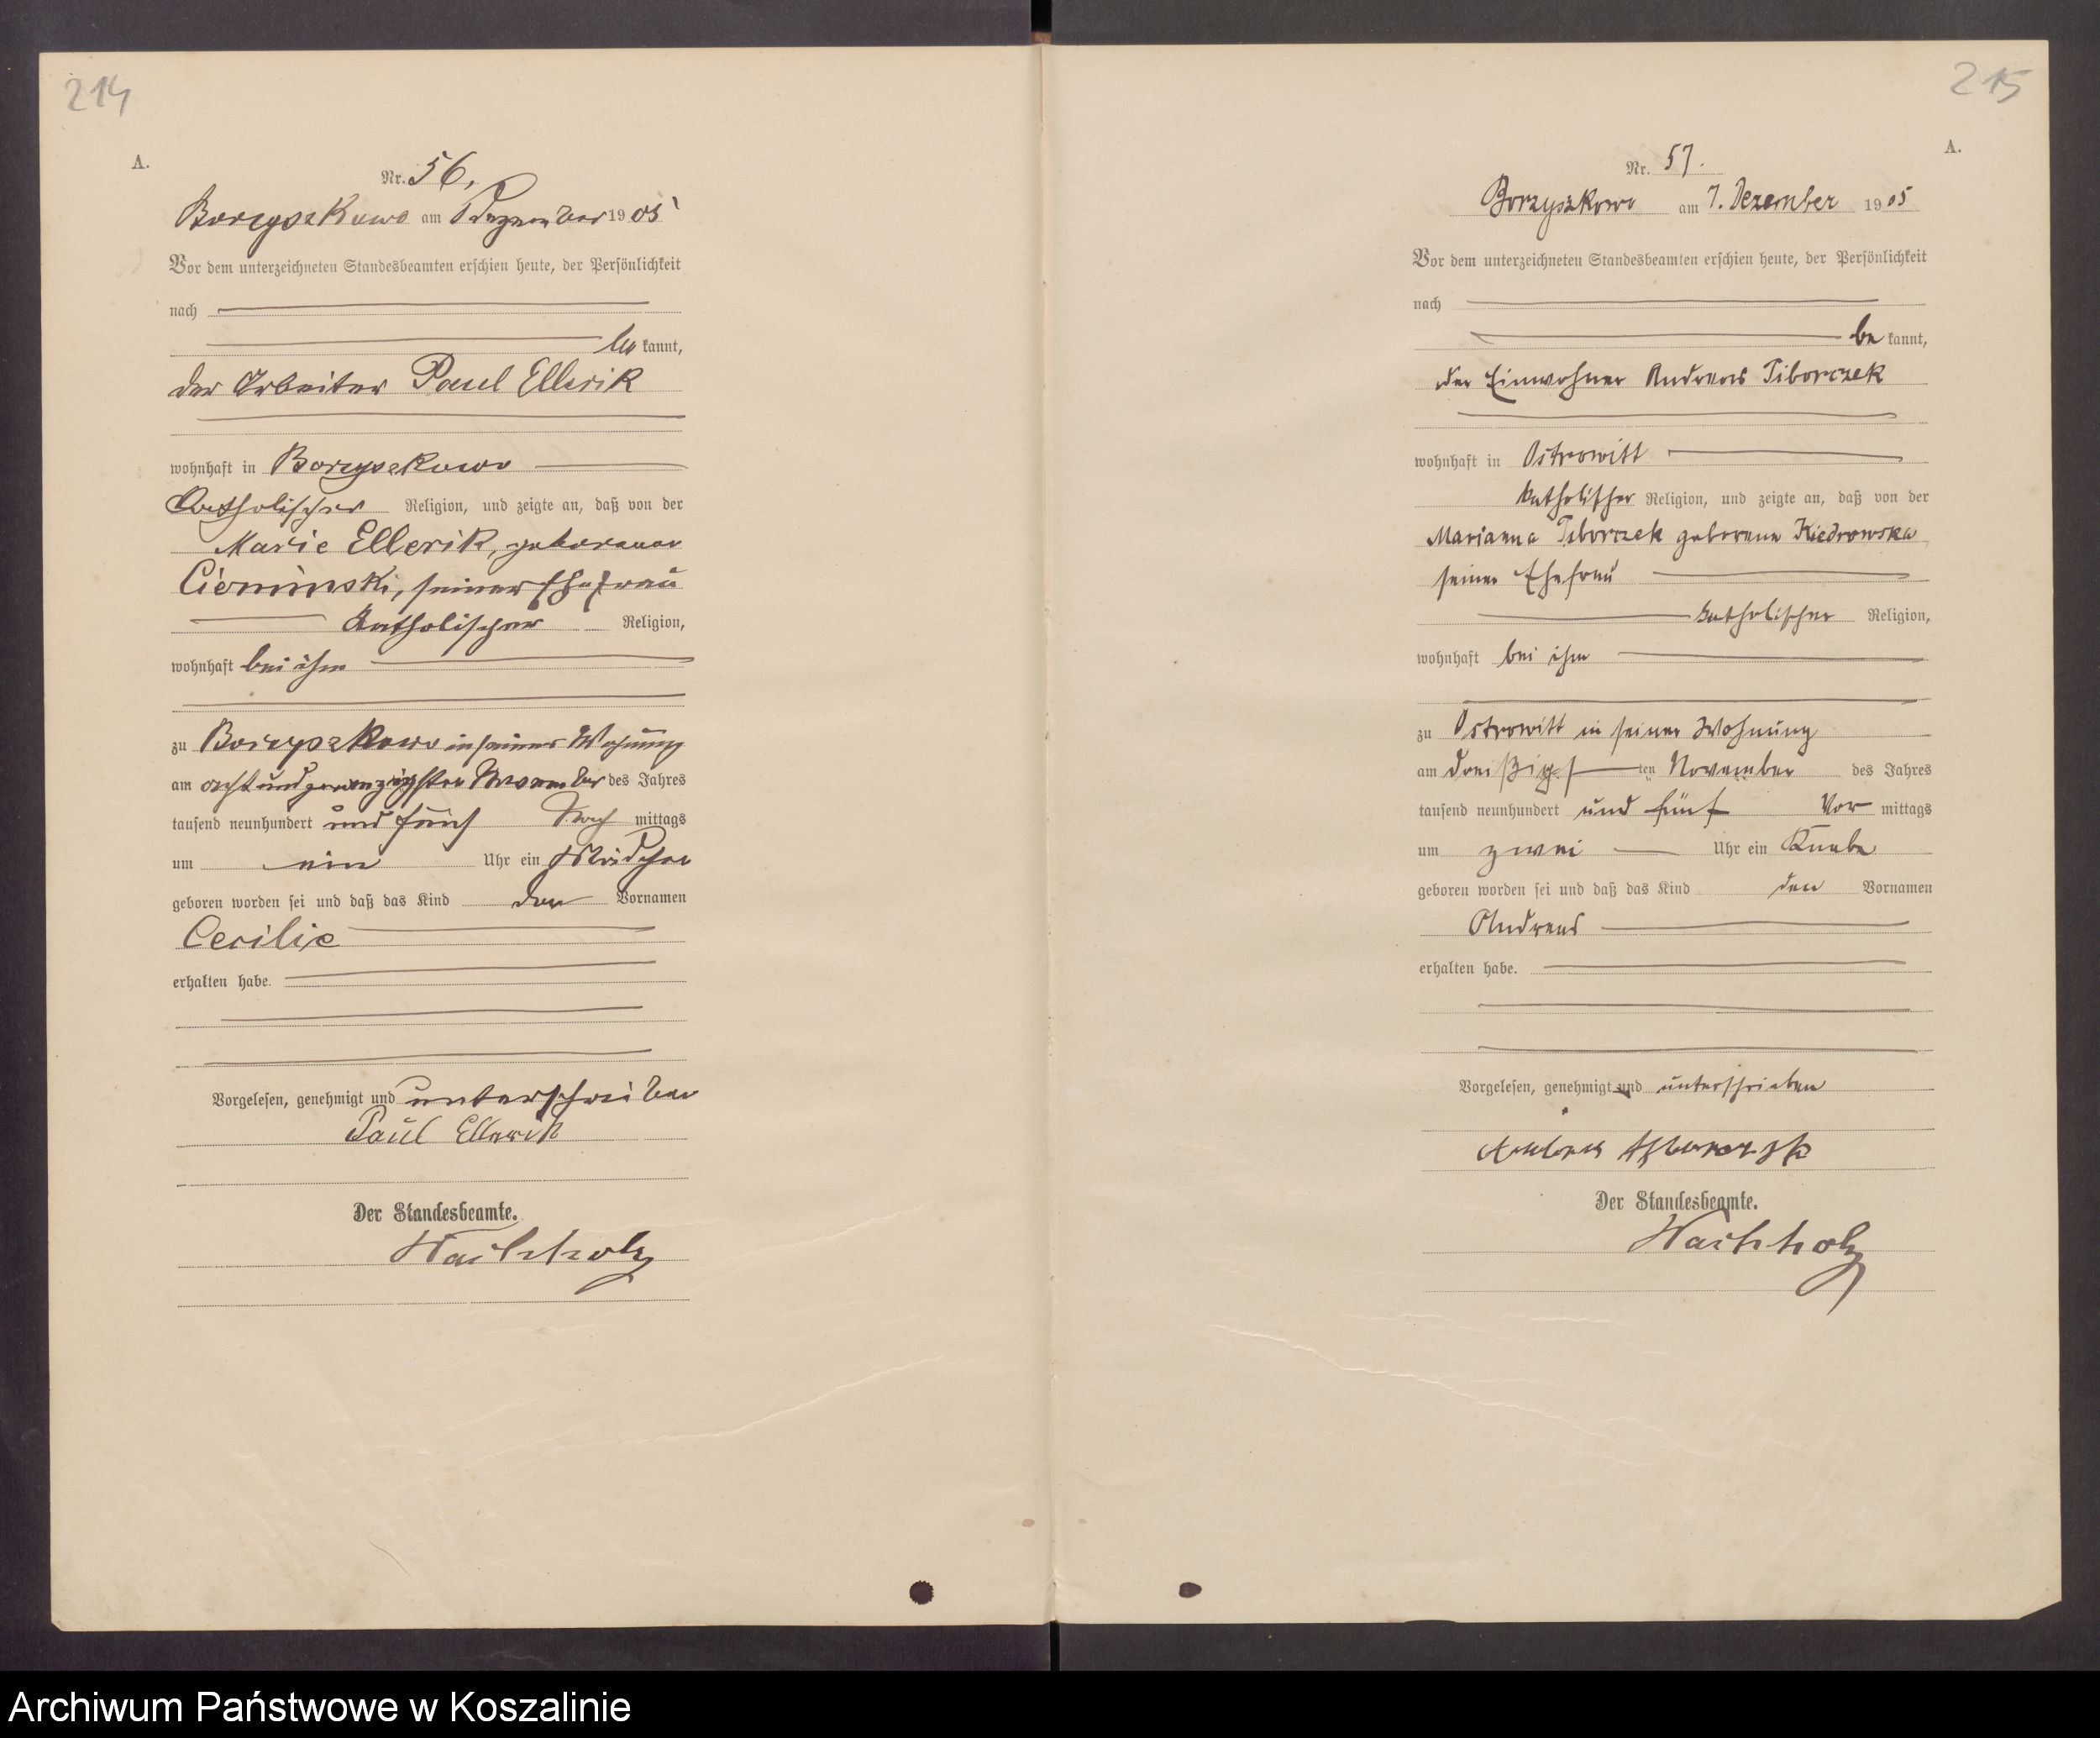 214
A.
Nr. 56.
Borzyszkowo am 1 Dezember 1905
Vor dem unterzeichneten Standesbeamten erschien heute, der Persönlichkeit
nach
be kannt,
der Arbeiter Paul Ellerik
wohnhaft in Borzyszkowo
Katholischer Religion, und zeigte an, daß von der
Marie Ellerik, geborenen
Cieminski, seiner Ehefrau
Katholischer Religion,
wohnhaft bei ihm
zu Borzyszkowo in seiner Wohnung
am achtundzwanzigsten November des Jahres
tausend neunhundert und fünf Nach mittags
um ein Uhr ein Mädchen
geboren worden sei und daß das Kind den Vornamen
Cecilie
erhalten habe.
Vorgelesen, genehmigt und unterschrieben
Paul Ellerik
Der Standesbeamte.
Wachholz
215
A.
Nr. 57.
Borzyszkowo am 7. Dezember 1905
Vor dem unterzeichneten Standesbeamten erschien heute, der Persönlichkeit
nach
be kannt,
der Einwohner Andreas Tiborczek
wohnhaft in Ostrowitt
katholischer Religion, und zeigte an, daß von der
Marianna Tiborczek geborene Kiedrowska
seiner Ehefrau
katholischer Religion,
wohnhaft bei ihm
zu Ostrowitt in seiner Wohnung
am dreißigsten November des Jahres
tausend neunhundert und fünf Vor mittags
um zwei Uhr ein Knabe
geboren worden sei und daß das Kind den Vornamen
Andreas
erhalten habe.
Vorgelesen, genehmigt und unterschrieben
Der Standesbeamte.
Wachholz
Archiwum Państwowe w Koszalinie